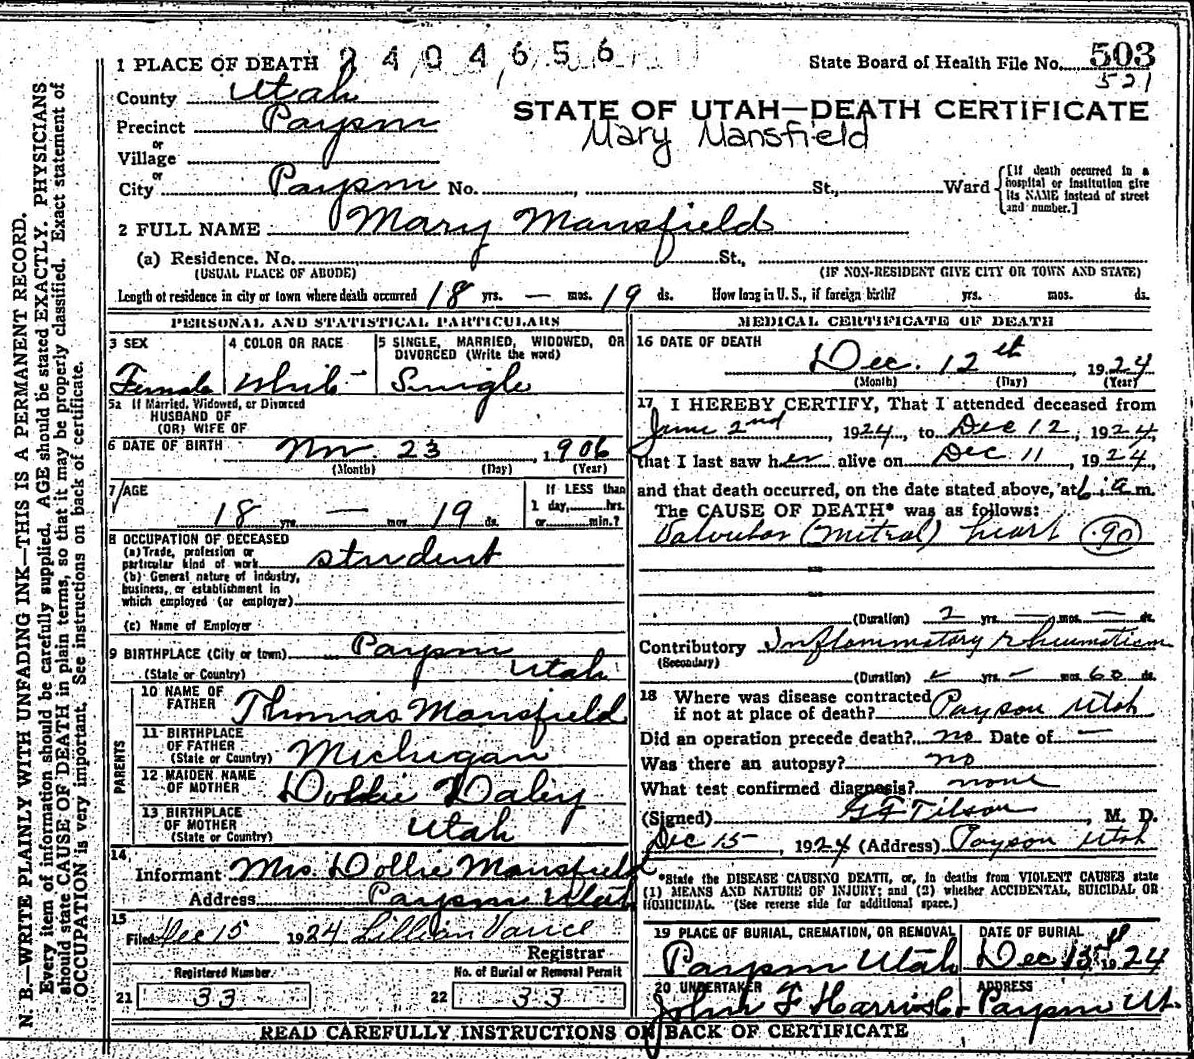 N. B.—WRITE PLAINLY WITH UNFADING INK—THIS IS A PERMANENT RECORD.
Every item of information should be carefully supplied. AGE should be stated EXACTLY. PHYSICIANS
should state CAUSE OF DEATH in plain terms, so that it may be properly classified. Exact statement of
OCCUPATION is very important. See instructions on back of certificate.
1 PLACE OF DEATH 2404656
State Board of Health File No. 503
521
County Utah
STATE OF UTAH—DEATH CERTIFICATE
Precinct Payson
Mary Mansfield
or
Village
or
City Payson No. , St., Ward
[If death occurred in a
hospital or institution give
its NAME instead of street
and number.]
2 FULL NAME Mary Mansfield
(a) Residence. No. St.,
(USUAL PLACE OF ABODE) (IF NON-RESIDENT GIVE CITY OR TOWN AND STATE)
Length of residence in city or town where death occurred 18 yrs. — mos. 19 ds. How long in U. S., if foreign birth? yrs. mos. ds.
PERSONAL AND STATISTICAL PARTICULARS
3 SEX 4 COLOR OR RACE 5 SINGLE, MARRIED, WIDOWED, OR
DIVORCED (Write the word)
Female White Single
5a If Married, Widowed, or Divorced
HUSBAND OF
(OR) WIFE OF
6 DATE OF BIRTH Nov. 23 1906
(Month) (Day) (Year)
7 AGE
If LESS than
1 day, hrs.
or min.?
18 yrs. — mos. 19 ds.
8 OCCUPATION OF DECEASED
(a) Trade, profession or
particular kind of work student
(b) General nature of industry,
business, or establishment in
which employed (or employer)
(c) Name of Employer
9 BIRTHPLACE (City or town) Payson
(State or Country) Utah
PARENTS
10 NAME OF
FATHER Thomas Mansfield
11 BIRTHPLACE
OF FATHER
(State or Country) Michigan
12 MAIDEN NAME
OF MOTHER Dollie Daley
13 BIRTHPLACE
OF MOTHER
(State or Country) Utah
14
Informant Mrs. Dollie Mansfield
Address Payson Utah
15
Filed Dec 15 1924 Lillian
Registrar
Registered Number No. of Burial or Removal Permit
21 33 22 33
MEDICAL CERTIFICATE OF DEATH
16 DATE OF DEATH
Dec. 12th 1924
(Month) (Day) (Year)
17 I HEREBY CERTIFY, That I attended deceased from
June 2nd, 1924, to Dec 12, 1924,
that I last saw her alive on Dec 11, 1924,
and that death occurred, on the date stated above, at 6 a m.
The CAUSE OF DEATH* was as follows:
Valvular (Mitral) heart 90
(Duration) 2 yrs. — mos. — ds.
Contributory Inflammatory rheumatism
(Secondary)
(Duration) yrs. — mos. 60 ds.
18 Where was disease contracted
if not at place of death? Payson Utah
Did an operation precede death? no Date of —
Was there an autopsy? no
What test confirmed diagnosis? none
(Signed) Tilson, M. D.
Dec 15, 1924 (Address) Payson Utah
*State the DISEASE CAUSING DEATH, or, in deaths from VIOLENT CAUSES state
(1) MEANS AND NATURE OF INJURY; and (2) whether ACCIDENTAL, SUICIDAL OR
HOMICIDAL. (See reverse side for additional space.)
19 PLACE OF BURIAL, CREMATION, OR REMOVAL DATE OF BURIAL
Payson Utah Dec 13th 1924
20 UNDERTAKER ADDRESS
John F Payson Ut.
READ CAREFULLY INSTRUCTIONS ON BACK OF CERTIFICATE